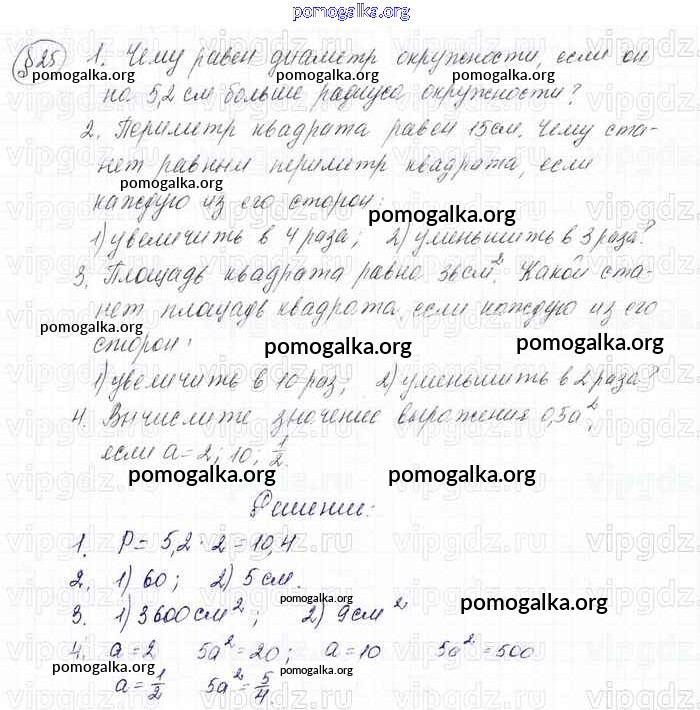 pomogalka.org
§25 1. Чему равен диаметр окружности, если он
pomogalka.org pomogalka.org pomogalka.org
на 5,2 см больше радиуса окружности?
2. Периметр квадрата равен 15 см. Чему ста-
нет равным периметр квадрата, если
pomogalka.org
каждую из его сторон:
pomogalka.org
1) увеличить в 4 раза; 2) уменьшить в 3 раза?
3. Площадь квадрата равна 36 см². Какой ста-
нет площадь квадрата, если каждую из его
pomogalka.org
сторон:
pomogalka.org pomogalka.org
1) увеличить в 10 раз; 2) уменьшить в 2 раза?
4. Вычислите значение выражения 0,5a²,
если a = 2; 10; 1/2.
pomogalka.org pomogalka.org
Решение:
1. P = 5,2 · 2 = 10,4
2. 1) 60; 2) 5 см.
3. 1) 3600 см²; 2) 9 см²
pomogalka.org pomogalka.org
4. a = 2 5a² = 20; a = 10 5a² = 500
pomogalka.org pomogalka.org
a = 1/2 5a² = 5/4.